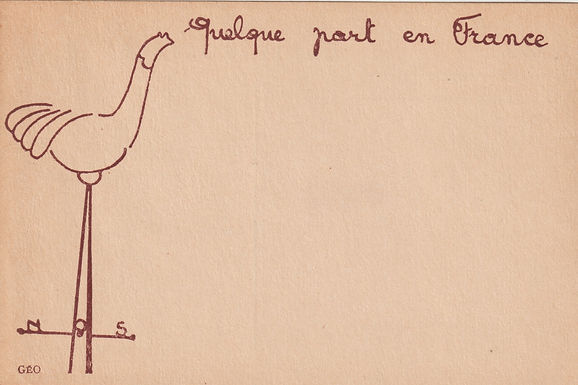 Quelque part en France
N S
GÉO